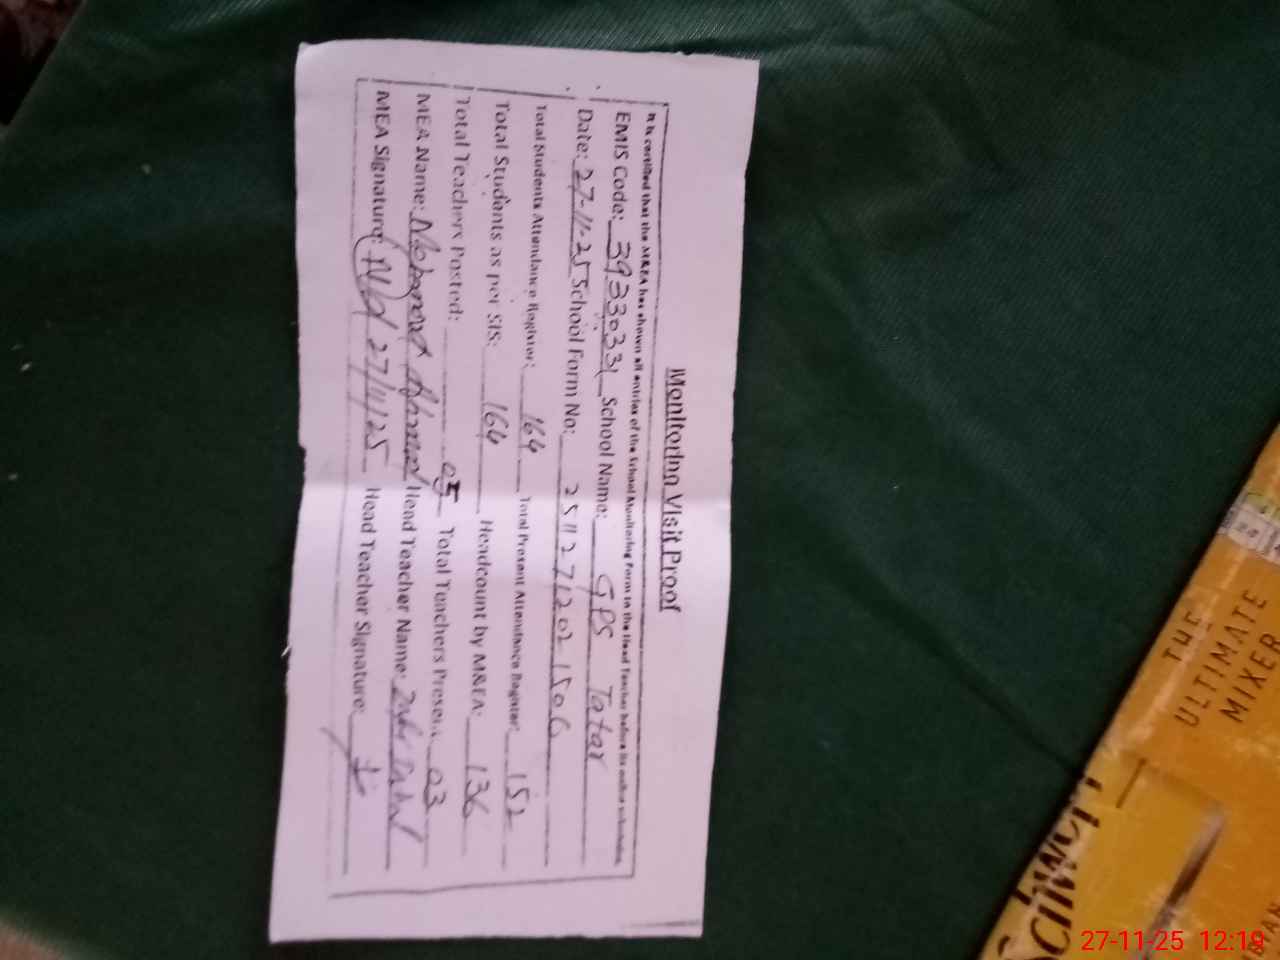 Monitoring Visit Proof
It is certified that the M&EA has shown all entries of the School Monitoring Form to the Head Teacher before its online submission.
EMIS Code: 39330331 School Name: GPS Tatar
Date: 27-11-25 School Form No: 25112712021506
Total Students Attendance Register: 164 Total Present Attendance Register: 152
Total Students as per SIS: 164 Headcount by M&EA: 136
Total Teachers Posted: 05 Total Teachers Present: 03
MEA Name: Ahmad Head Teacher Name:
MEA Signature: 27/11/25 Head Teacher Signature:
THE
ULTIMATE
MIXER
27-11-25 12:19